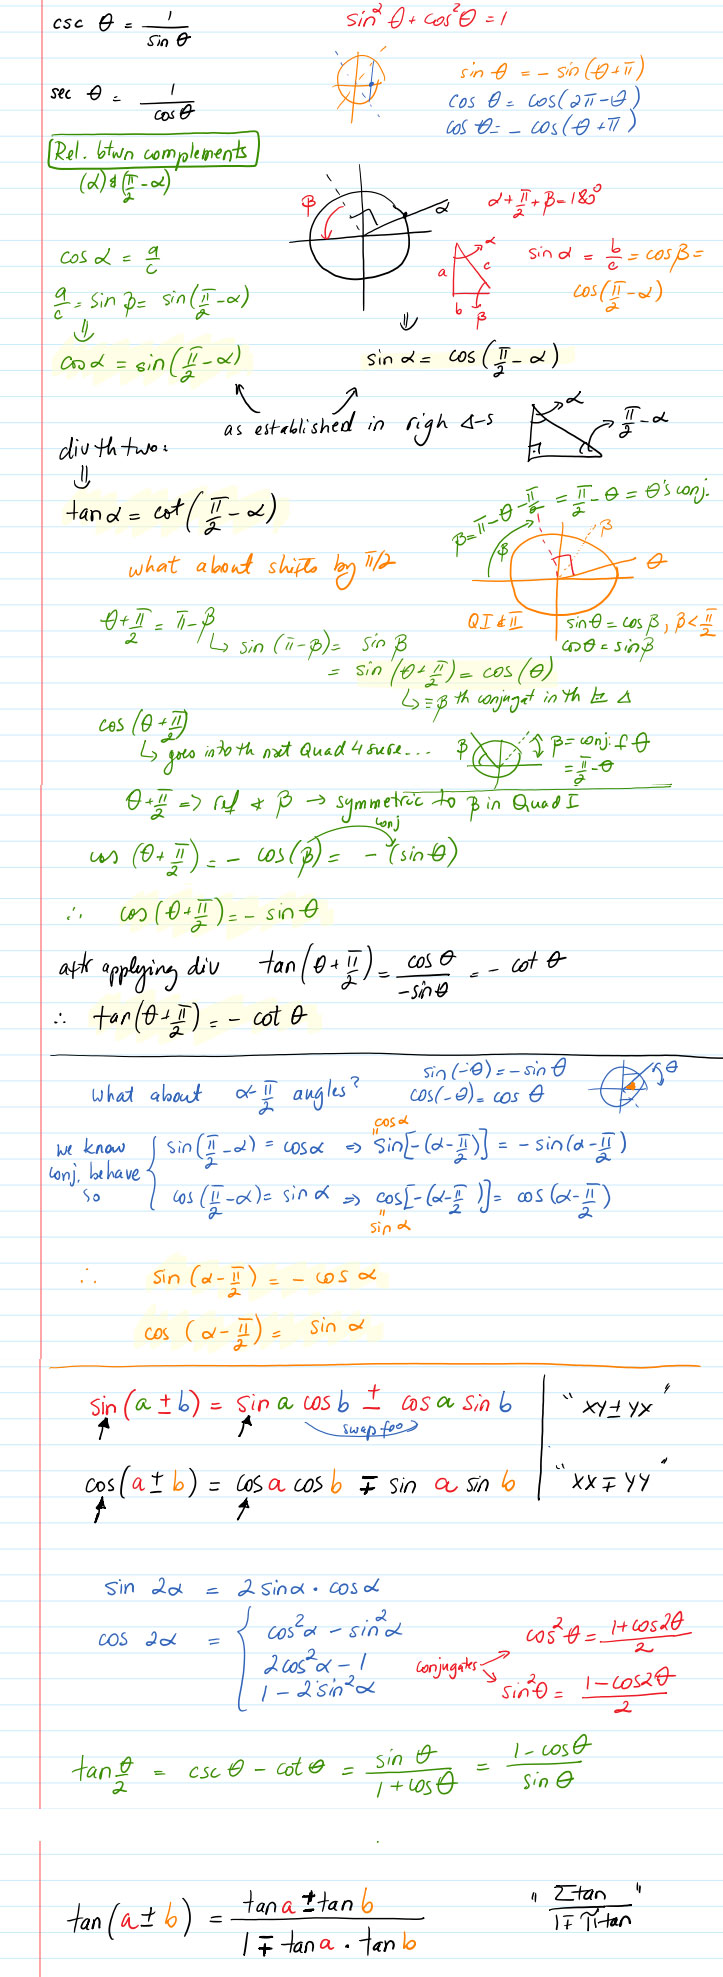 csc θ = 1/sin θ
sin² θ + cos² θ = 1
sin θ = - sin(θ+π)
cos θ = cos(2π-θ)
cos θ = - cos(θ+π)
sec θ = 1/cos θ
Rel. btwn complements
(α) & (π/2 - α)
β
α
α + π/2 + β = 180°
cos α = a/c
a/c = sin β = sin(π/2 - α)
⇓
a
c
b
α
β
sin α = b/c = cos β =
cos(π/2 - α)
⇓
cos α = sin(π/2 - α)
sin α = cos(π/2 - α)
as established in righ Δ-s
α
π/2 - α
div th two:
⇓
tan α = cot(π/2 - α)
β = π - θ - π/2 = π/2 - θ = θ's conj.
β
β
θ
what about shifts by π/2
QI & II
sin θ = cos β, β < π/2
cos θ = sin β
θ + π/2 = π - β
↳ sin (π-β) = sin β
= sin (θ + π/2) = cos (θ)
↳ ≡ β th conjugat in th Δ
cos (θ + π/2)
↳ goes into th next Quad 4 sure...
β
β = conj. of θ
= π/2 - θ
θ + π/2 => ref ∡ β → symmetric to β in Quad I
conj
cos (θ + π/2) = - cos(β) = - (sin θ)
∴ cos(θ + π/2) = - sin θ
aftr applying div tan(θ + π/2) = cos θ/-sin θ = - cot θ
∴ tan(θ + π/2) = - cot θ
what about α - π/2 angles?
sin(-θ) = - sin θ
cos(-θ) = cos θ
θ
we know conj. behave so
cos α
=
sin(π/2 - α) = cos α ⇒ sin[-(α - π/2)] = - sin(α - π/2)
cos(π/2 - α) = sin α ⇒ cos[-(α - π/2)] = cos(α - π/2)
=
sin α
∴ sin (α - π/2) = - cos α
cos (α - π/2) = sin α
sin (a ± b) = sin a cos b ± cos a sin b
swap foo
" xy ± yx "
cos(a ± b) = cos a cos b ∓ sin a sin b
" xx ∓ yy "
sin 2α = 2 sin α · cos α
cos 2α = { cos² α - sin² α
2cos² α - 1
1 - 2 sin² α
conjugates
cos² θ = 1 + cos 2θ/2
sin² θ = 1 - cos 2θ/2
tan θ/2 = csc θ - cot θ = sin θ/1 + cos θ = 1 - cos θ/sin θ
tan(a ± b) = tan a ± tan b/1 ∓ tan a · tan b
" Σ tan/1 ∓ Π tan "